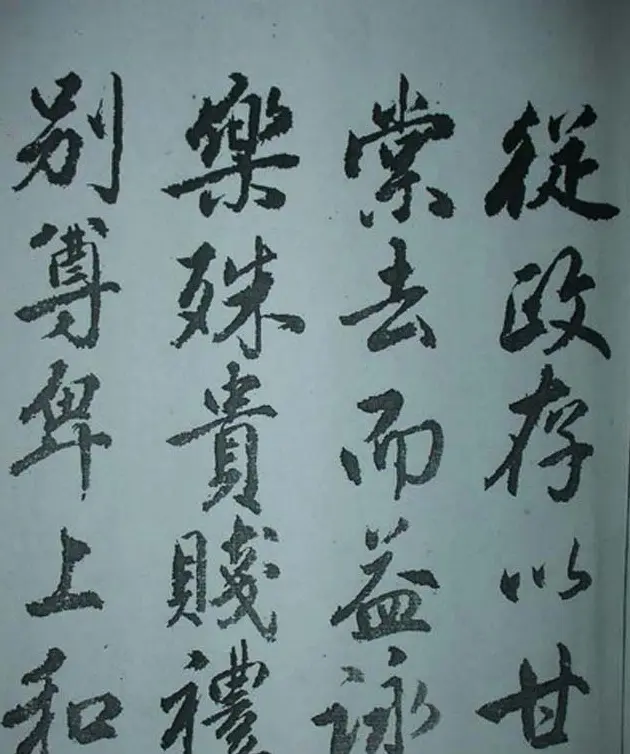 從政存以甘
棠去而益詠
樂殊貴賤禮
別尊卑上和